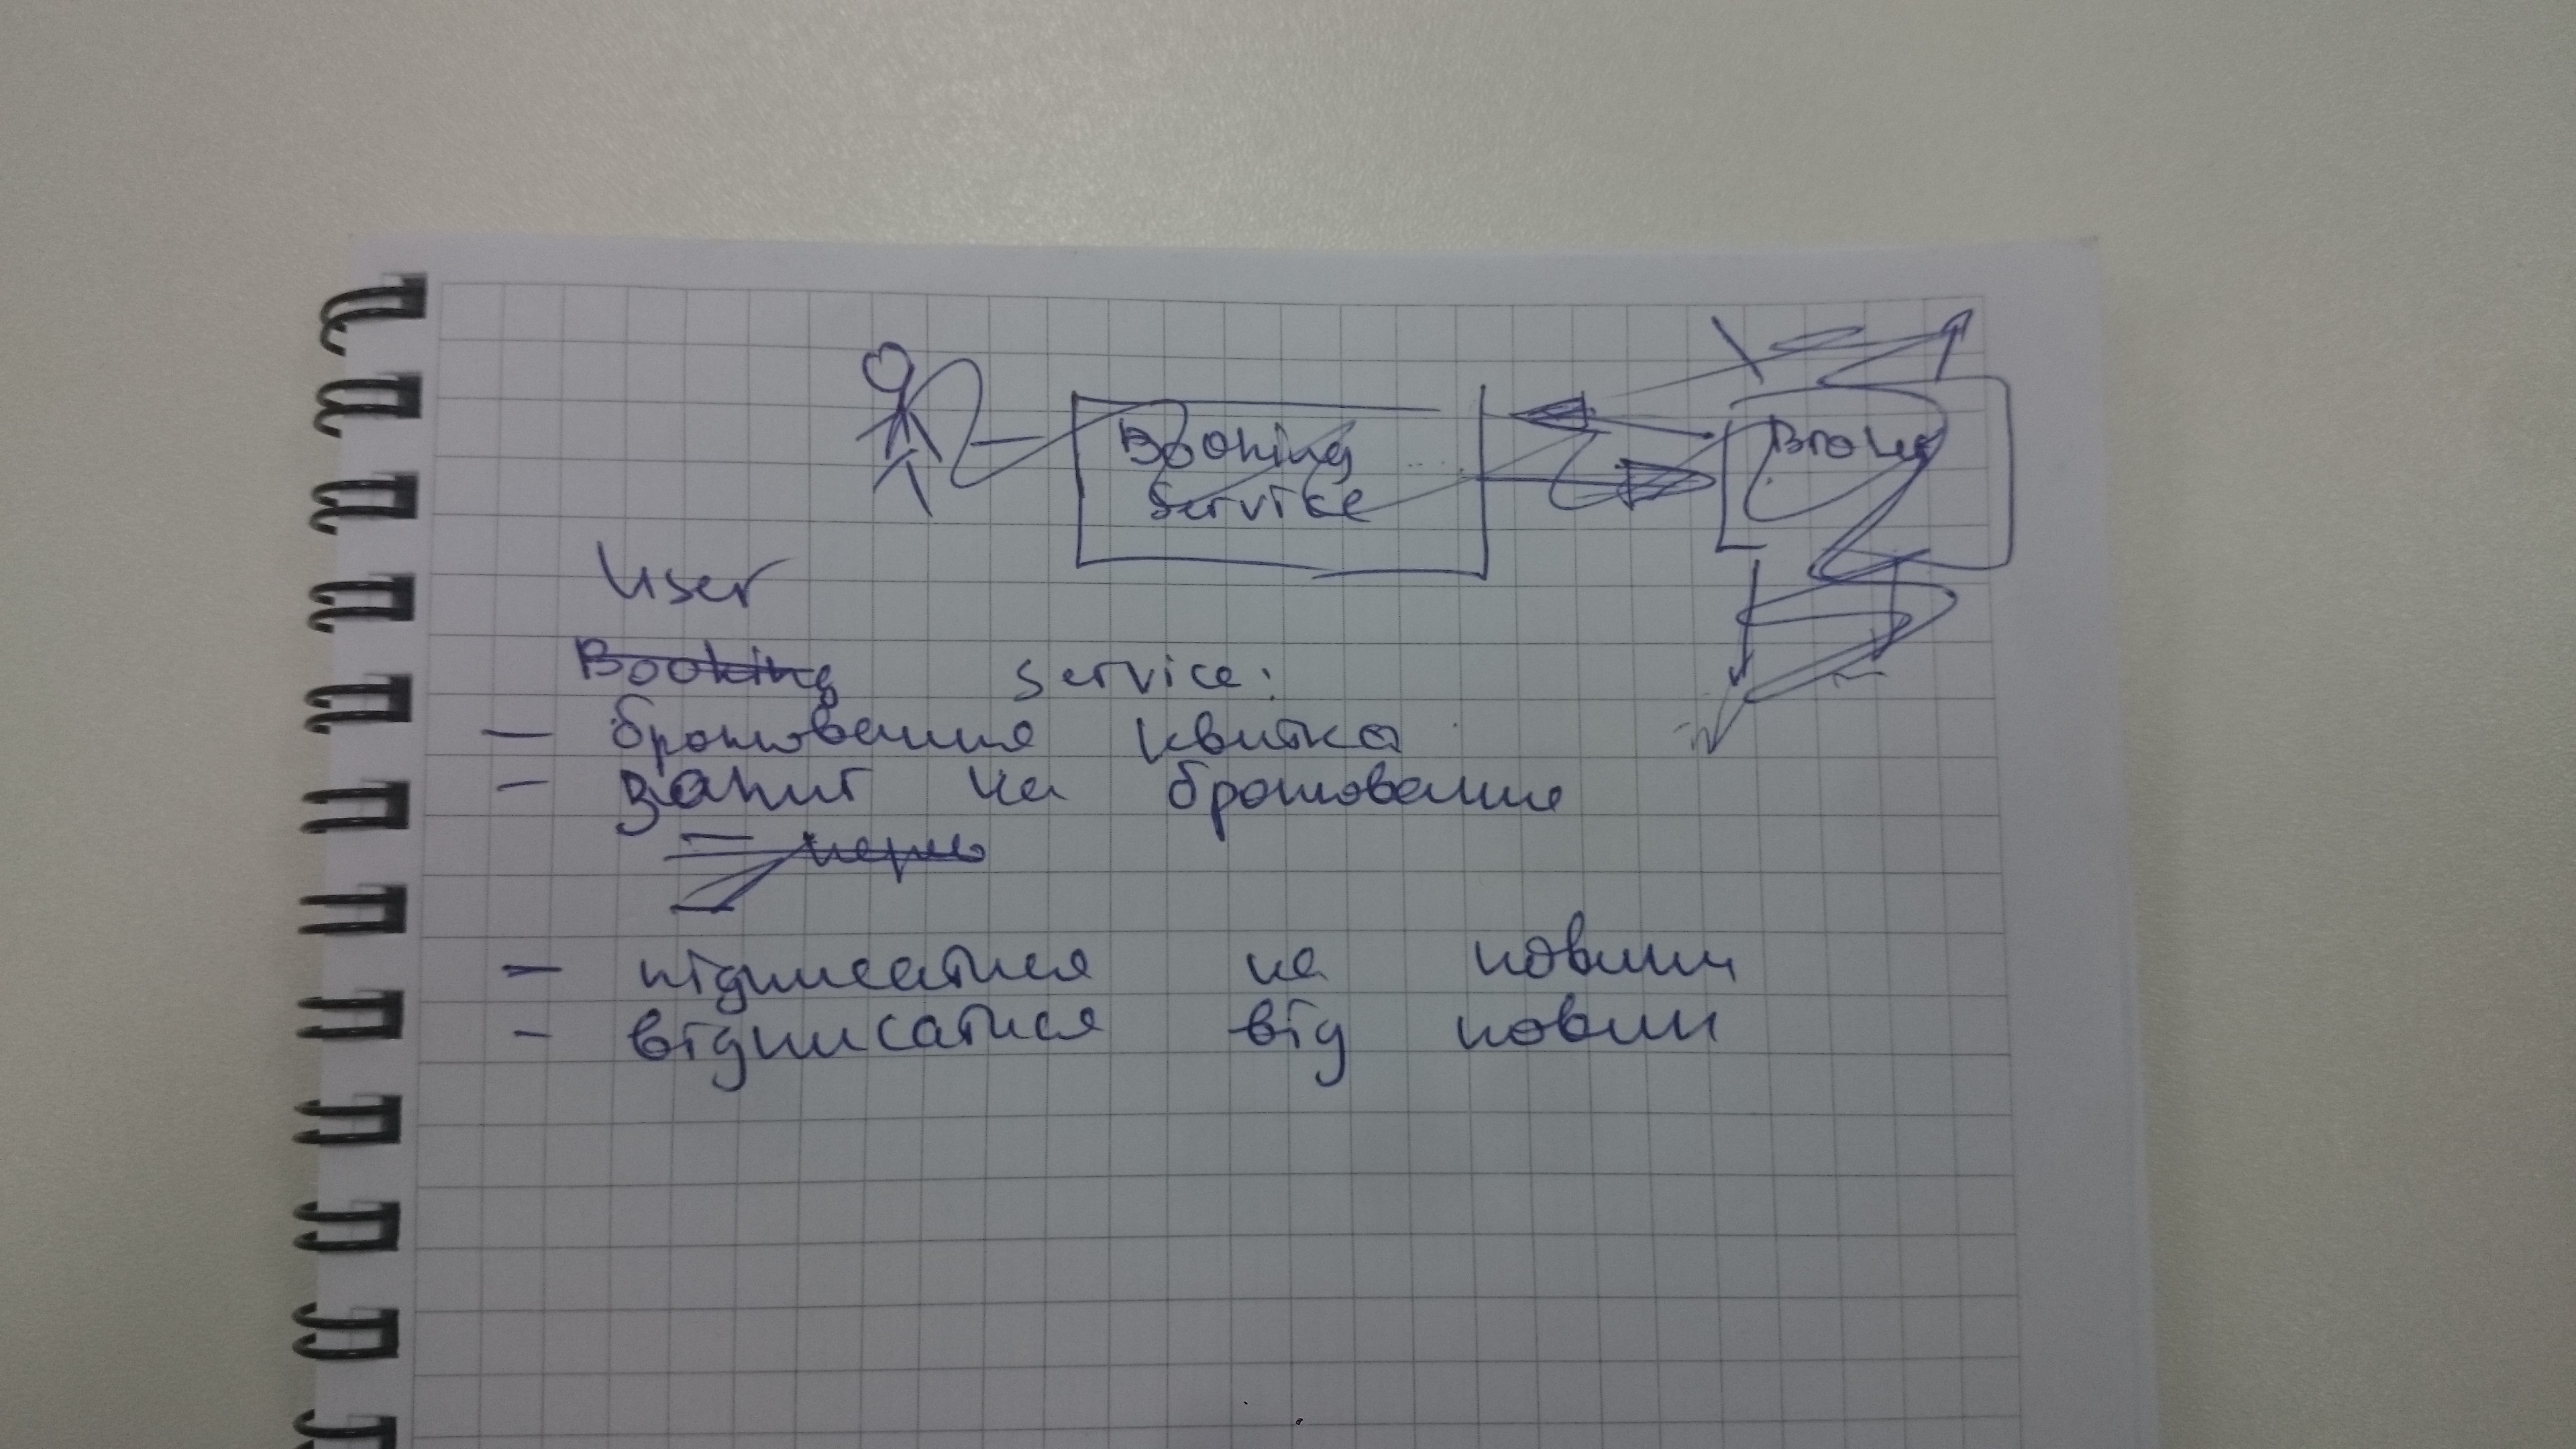 Booking
Service
Broker
User
Booking service:
- бронювання квитка
- запит на бронювання
- підписатися на новини
- відписатися від новин